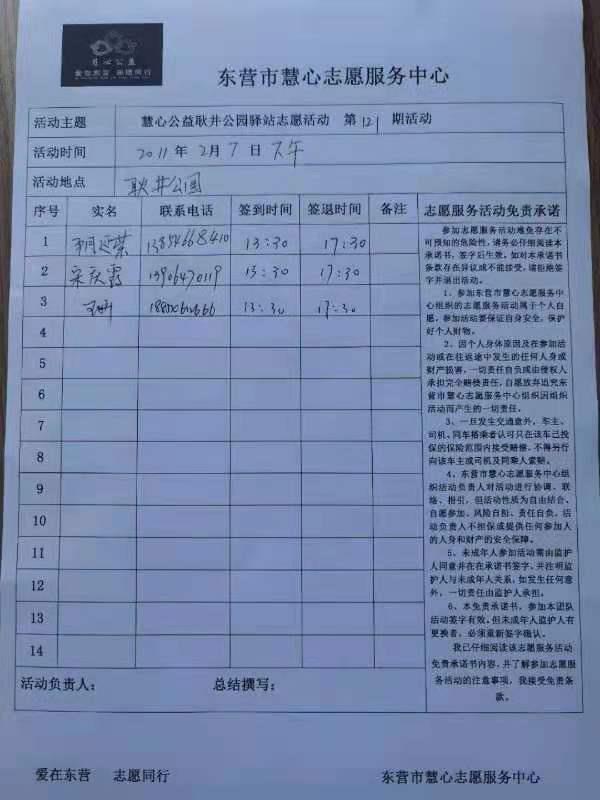 慧心公益
爱在东营 志愿同行
东营市慧心志愿服务中心
活动主题 慧心公益耿井公园驿站志愿活动 第121期活动
活动时间 2011年2月7日下午
活动地点 耿井公园
序号 实名 联系电话 签到时间 签退时间 备注
1 13854668410 13:30 17:30
2 宋庆霞 13906470119 13:30 17:30
3 13:30 17:30
4
5
6
7
8
9
10
11
12
13
14
活动负责人： 总结撰写：
志愿服务活动免责承诺
参加志愿服务活动难免存在不
可预知的危险性，请务必仔细阅读本
承诺书，签字后生效。如对本承诺书
条款存在异议或不能接受，请拒绝签
字并退出活动。
1、参加东营市慧心志愿服务中
心组织的志愿服务活动属于个人自
愿，参加活动要保证自身安全，保护
好个人财物。
2、因个人身体原因及在参加活
动或在往返途中发生的任何人身或
财产损害，一切责任自负或由侵权人
承担完全赔偿责任，自愿放弃追究东
营市慧心志愿服务中心组织因组织
活动而产生的一切责任。
3、一旦发生交通意外，车主、
司机、同车搭乘者认可只在该车已投
保的保险范围内接受赔偿，不得另行
向该车主或司机及同乘人索赔。
4、东营市慧心志愿服务中心组
织活动负责人对活动进行协调、联
络、指引，但活动性质为自由结合、
自愿参加、风险自担、责任自负，活
动负责人不担保或提供任何参加人
的人身和财产的安全保障。
5、未成年人参加活动需由监护
人同意并在在承诺书签字，并注明监
护人与未成年人关系，如发生任何意
外，一切责任由监护人承担。
6、本免责承诺书，参加本团队
活动签字有效。但未成年人监护人有
更换者，必须重新签字确认。
我已仔细阅读该志愿服务活动
免责承诺书内容，并了解参加志愿服
务活动的注意事项，我接受免责条
款。
爱在东营 志愿同行 东营市慧心志愿服务中心